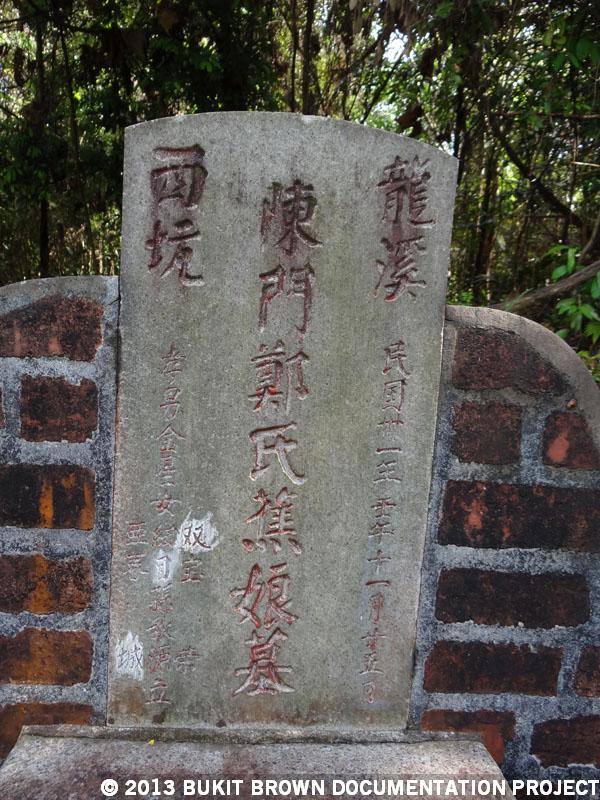 龍溪
民国卅一壬午年十一月廿五日
陳門鄭氏蕉娘墓
西坑
孝男金 女 源 立
城
© 2013 BUKIT BROWN DOCUMENTATION PROJECT